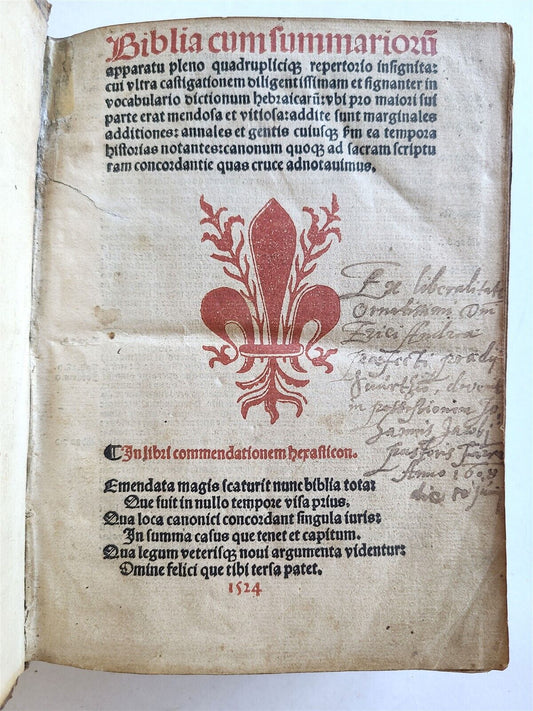 Biblia cum summariorū
apparatu pleno quadrupliciqꝫ repertorio insignita:
cui vltra castigationem diligentissimam et signanter in
vocabulario dictionum hebraicarū: vbi pro maiori sui
parte erat mendosa et vitiosa: addite sunt marginales
additiones: annales et gentis cuiusqꝫ
ea tempora
historias notantes: canonum quoqꝫ ad sacram scriptu
ram concordantie quas cruce adnotauimus.
Ex liberalitate
Ornatissimi Dn
Erici
praefecti
devenit
in possessionem Jo
hannis Jacobi
pastoris
Anno
die
¶ In libri commendationem hexasticon.
Emendata magis scaturit nunc biblia tota:
Que fuit in nullo tempore visa prius.
Qua loca canonici concordant singula iuris:
In summa casus que tenet et capitum.
Qua legum veterisqꝫ noui argumenta videntur:
Omine felici que tibi tersa patet.
1524